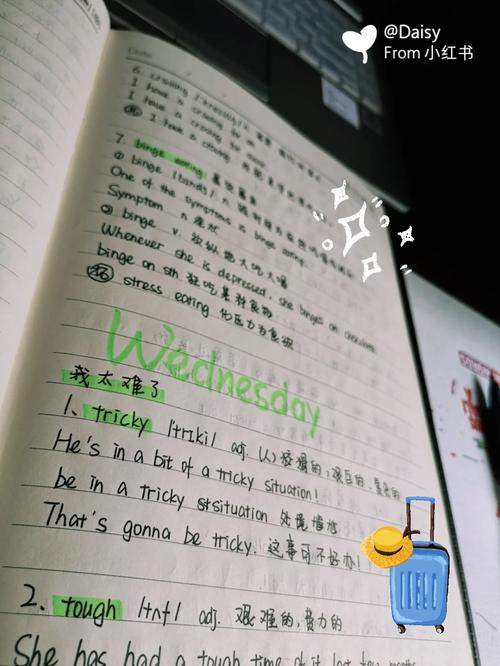 @Daisy
From 小红书
6. craving
I have a craving
I have a craving to
I have a craving
7. binge eating 暴饮暴食
① binge /bɪndʒ/ n.
One of the symptoms is binge eating.
Symptom n. 症状
② binge v. 放纵地大吃大喝
Whenever she is depressed, she binges on chocolate.
binge on sth 狂吃某种食物
stress eating 化压力为食欲
Wednesday
我太难了
1. tricky /trɪki/ adj. (人)狡猾的;艰巨的
He's in a bit of a tricky situation!
be in a tricky situation 处境尴尬
That's gonna be tricky. 这事可不好办!
2. tough /tʌf/ adj. 艰难的,费力的
She has had a tough time of it last few months